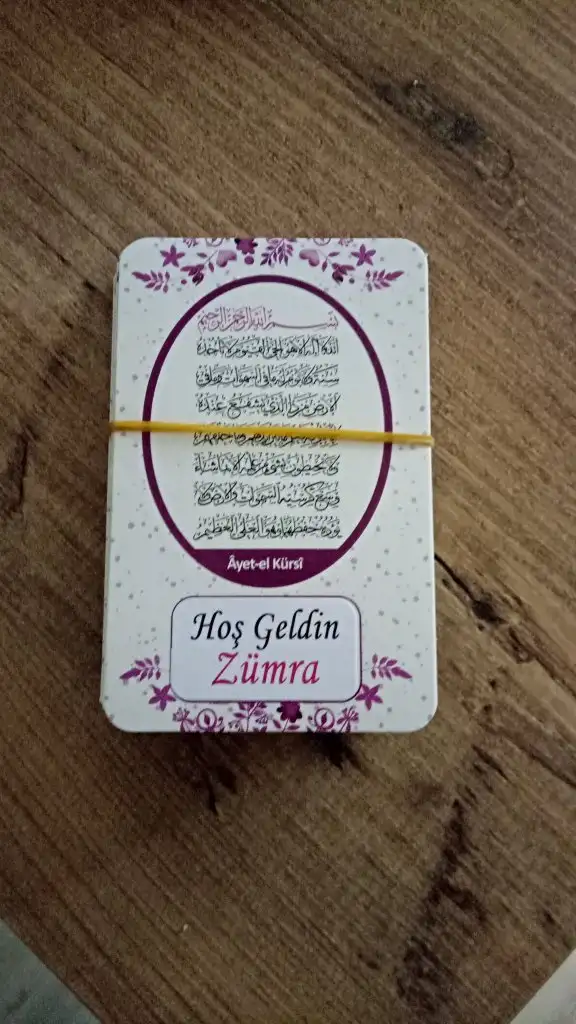 بسم الله الرحمن الرحيم
الله لا اله الا هو الحي القيوم لا تأخذه
سنة ولا نوم له ما في السموات وما في
الارض من ذا الذي يشفع عنده
يحيطون بشيء من علمه الا بما شاء
وسع كرسيه السموات والارض ولا
يؤده حفظهما وهو العلي العظيم
Âyet-el Kürsî
Hoş Geldin
Zümra